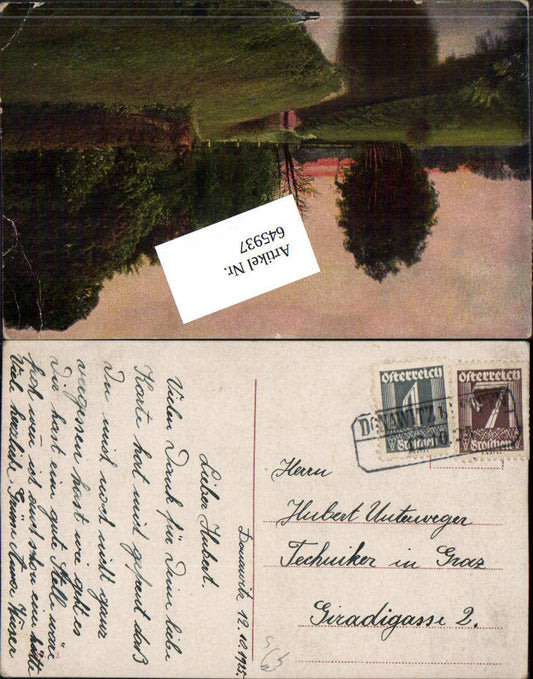 Artikel Nr.
645937
Donawitz 12.10.1925.
Lieber Hubert.
Vielen Dank für Deine liebe
Karte hat mich gefreut daß
Du mich noch nicht ganz
vergessen hast wie geht es
Dir hast eine gute Stelle wäre
froh wen ich schon eine hätte
Viele herzliche Grüße
Österreich
1
Groschen
Österreich
7
Groschen
DONAWITZ
Herrn
Hubert Unterweger
Techniker in Graz
Giradigasse 2.